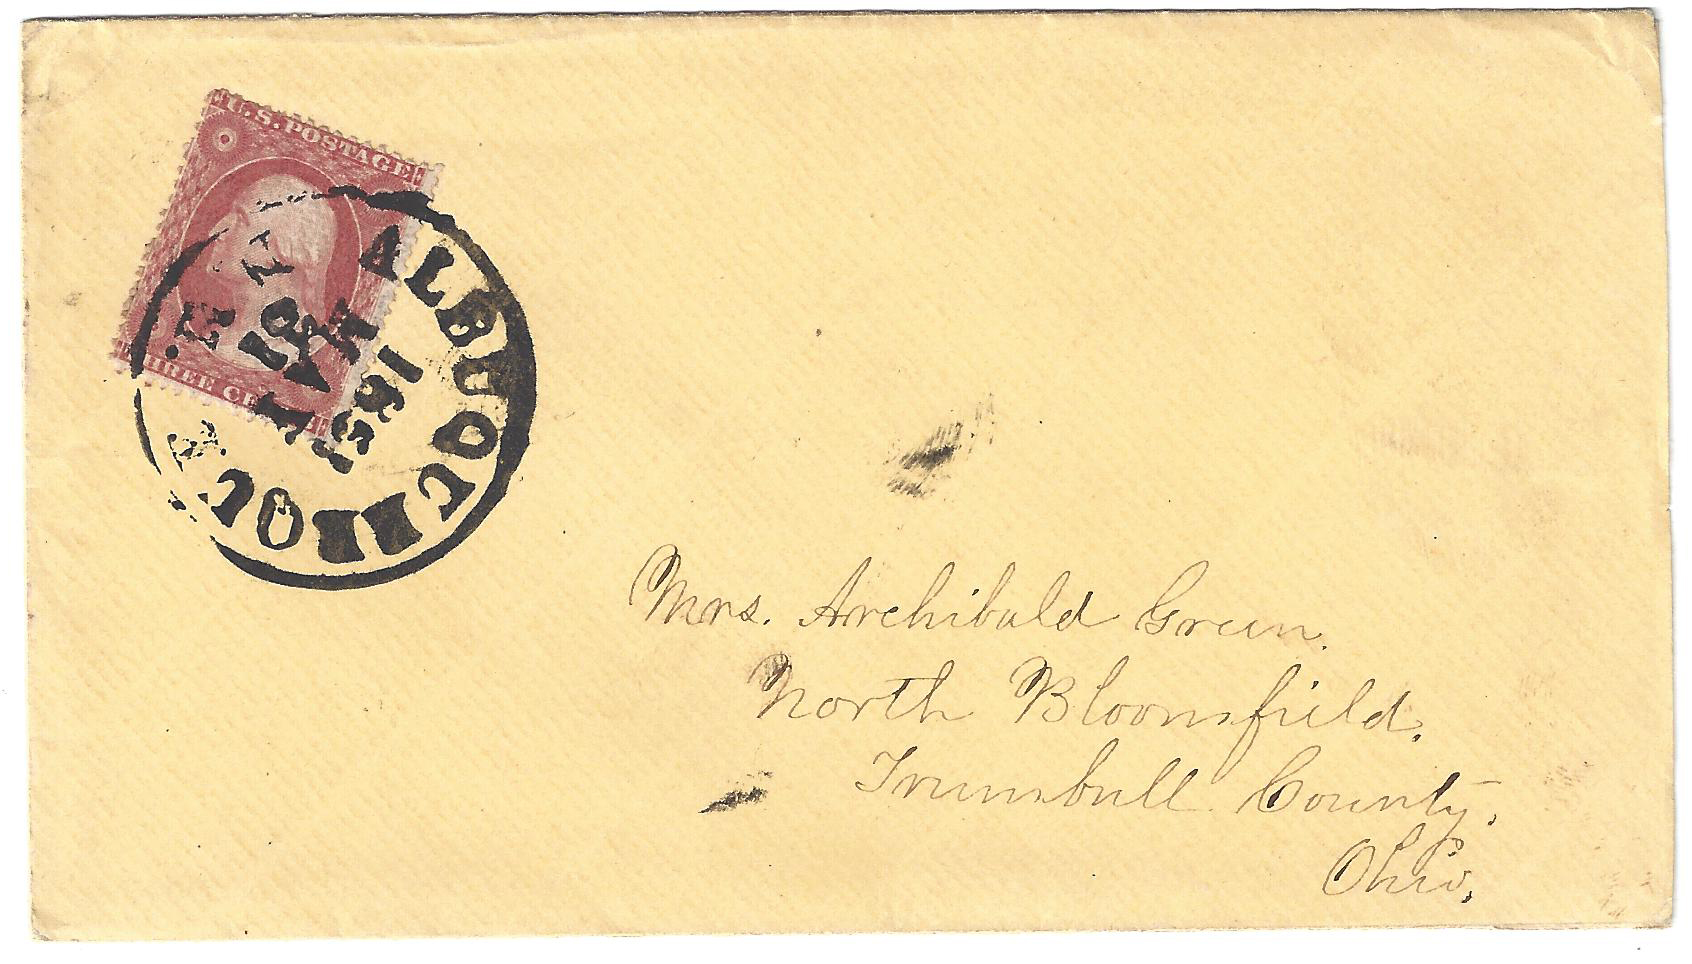 U.S. POSTAGE
THREE CE
ALBUQUERQUE N. M.
JAN
1861
Mrs. Archibald Green.
North Bloomfield.
Trumbull County.
Ohio.